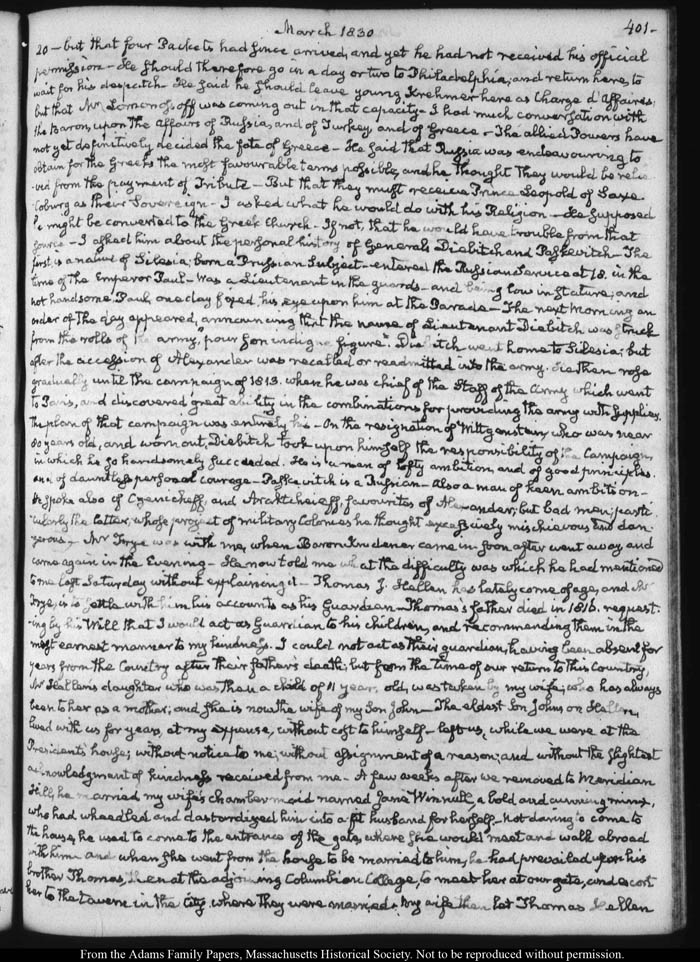 March 1830
401-
20 - but that four Packets had since arrived, and yet he had not received his official
permission - He should therefore go in a day or two to Philadelphia, and return here, to
wait for his despatch - He said he should leave young Krehmer here as Chargé d'Affaires;
but that Mr Lomonosoff was coming out in that capacity - I had much conversation with
the Baron, upon the affairs of Russia, and of Turkey, and of Greece - The allied Powers have
not yet definitively decided the fate of Greece - He said that Russia was endeavouring to
obtain for the Greeks the most favourable terms possible, and he thought they would be relie
ved from the payment of Tribute - But that they must receive Prince Leopold of Saxe
Coburg as their Sovereign - I asked what he would do with his Religion - He supposed
he might be converted to the Greek Church - If not, that he would have trouble from that
source - I asked him about the personal history of Generals Diebitch and Paskevitch - The
first is a native of Silesia; born a Prussian Subject - entered the Russian Service at 18. in the
time of the Emperor Paul - Was a Lieutenant in the guards - and being low in stature, and
not handsome, Paul, one day fixed his eye upon him at the Parade - The next morning an
order of the day appeared, announcing that the name of Lieutenant Diebitch was struck
from the rolls of the army, "pour son indigne figure." Diebitch went home to Silesia; but
after the accession of Alexander was recalled or readmitted into the army. He then rose
gradually until the campaign of 1813. when he was chief of the Staff of the army which went
to Paris, and discovered great ability in the combinations for providing the army with supplies.
The plan of that campaign was entirely his - On the resignation of Wittgenstein, who was near
80 years old, and worn out, Diebitch took upon himself the responsibility of the Campaign,
in which he so handsomely succeeded. He is a man of lofty ambition, and of good principles.
and of dauntless personal courage - Paskevitch is a Russian - also a man of keen ambition -
He spoke also of Czernicheff, and Araktcheieff, favourites of Alexander; but bad men; parti-
cularly the latter, whose project of military Colonies he thought excessively mischievous and dan-
gerous - Mr Frye was with me, when Baron Krudener came in - soon after went away and
came again in the Evening - He now told me what the difficulty was which he had mentioned
to me last Saturday without explaining it - Thomas J. Hellen has lately come of age, and Mr
Frye, is to settle with him his accounts as his Guardian - Thomas's father died in 1815. request-
ing by his Will that I would act as Guardian to his children, and recommending them in the
most earnest manner to my kindness. I could not act as their guardian, having been absent for
years from the Country after their father's death; but from the time of our return to this Country,
Mr Hellen's daughter who was then a child of 11 years old, was taken by my wife; who has always
been to her as a mother; and she is now the wife of my Son John - The eldest Son Johnson Hellen,
lived with us for years, at my expense, without cost to himself - left us, while we were at the
President's house; without notice to me; without assignment of a reason; and without the slightest
acknowledgment of kindness received from me - A few weeks after we removed to Meridian
Hill, he married my wife's chambermaid named Jane Winnull, a bold and cunning minx,
who had wheedled and dastardized him into a fit husband for herself - Not daring to come to
the house, he used to come to the entrance of the gate, where she would meet and walk abroad
with him; and when she went from the house to be married to him, he had prevailed upon his
brother Thomas, then at the adjoining Columbian College, to meet her at our gate, and escort
her to the tavern in the City, where they were married. My wife then let Thomas Hellen
From the Adams Family Papers, Massachusetts Historical Society. Not to be reproduced without permission.